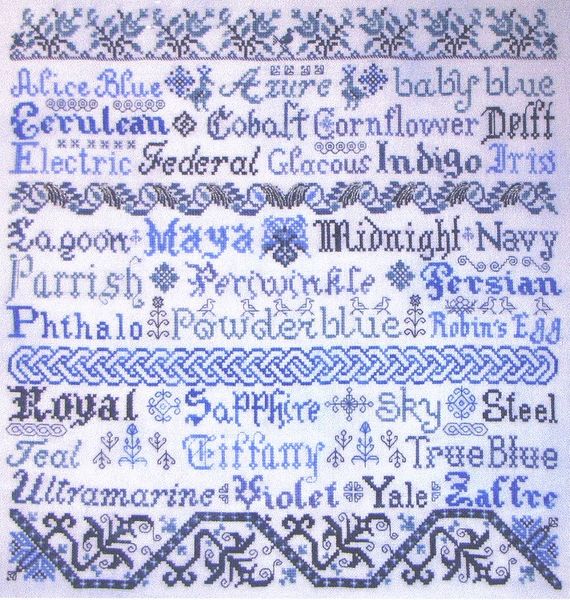 Alice Blue Azure baby blue
Cerulean Cobalt Cornflower Delft
Electric Federal Glacous Indigo Iris
Lagoon Maya Midnight Navy
Parrish Periwinkle Persian
Phthalo Powderblue Robin's Egg
Royal Sapphire Sky Steel
Teal Tiffany True Blue
Ultramarine Violet Yale Zaffre